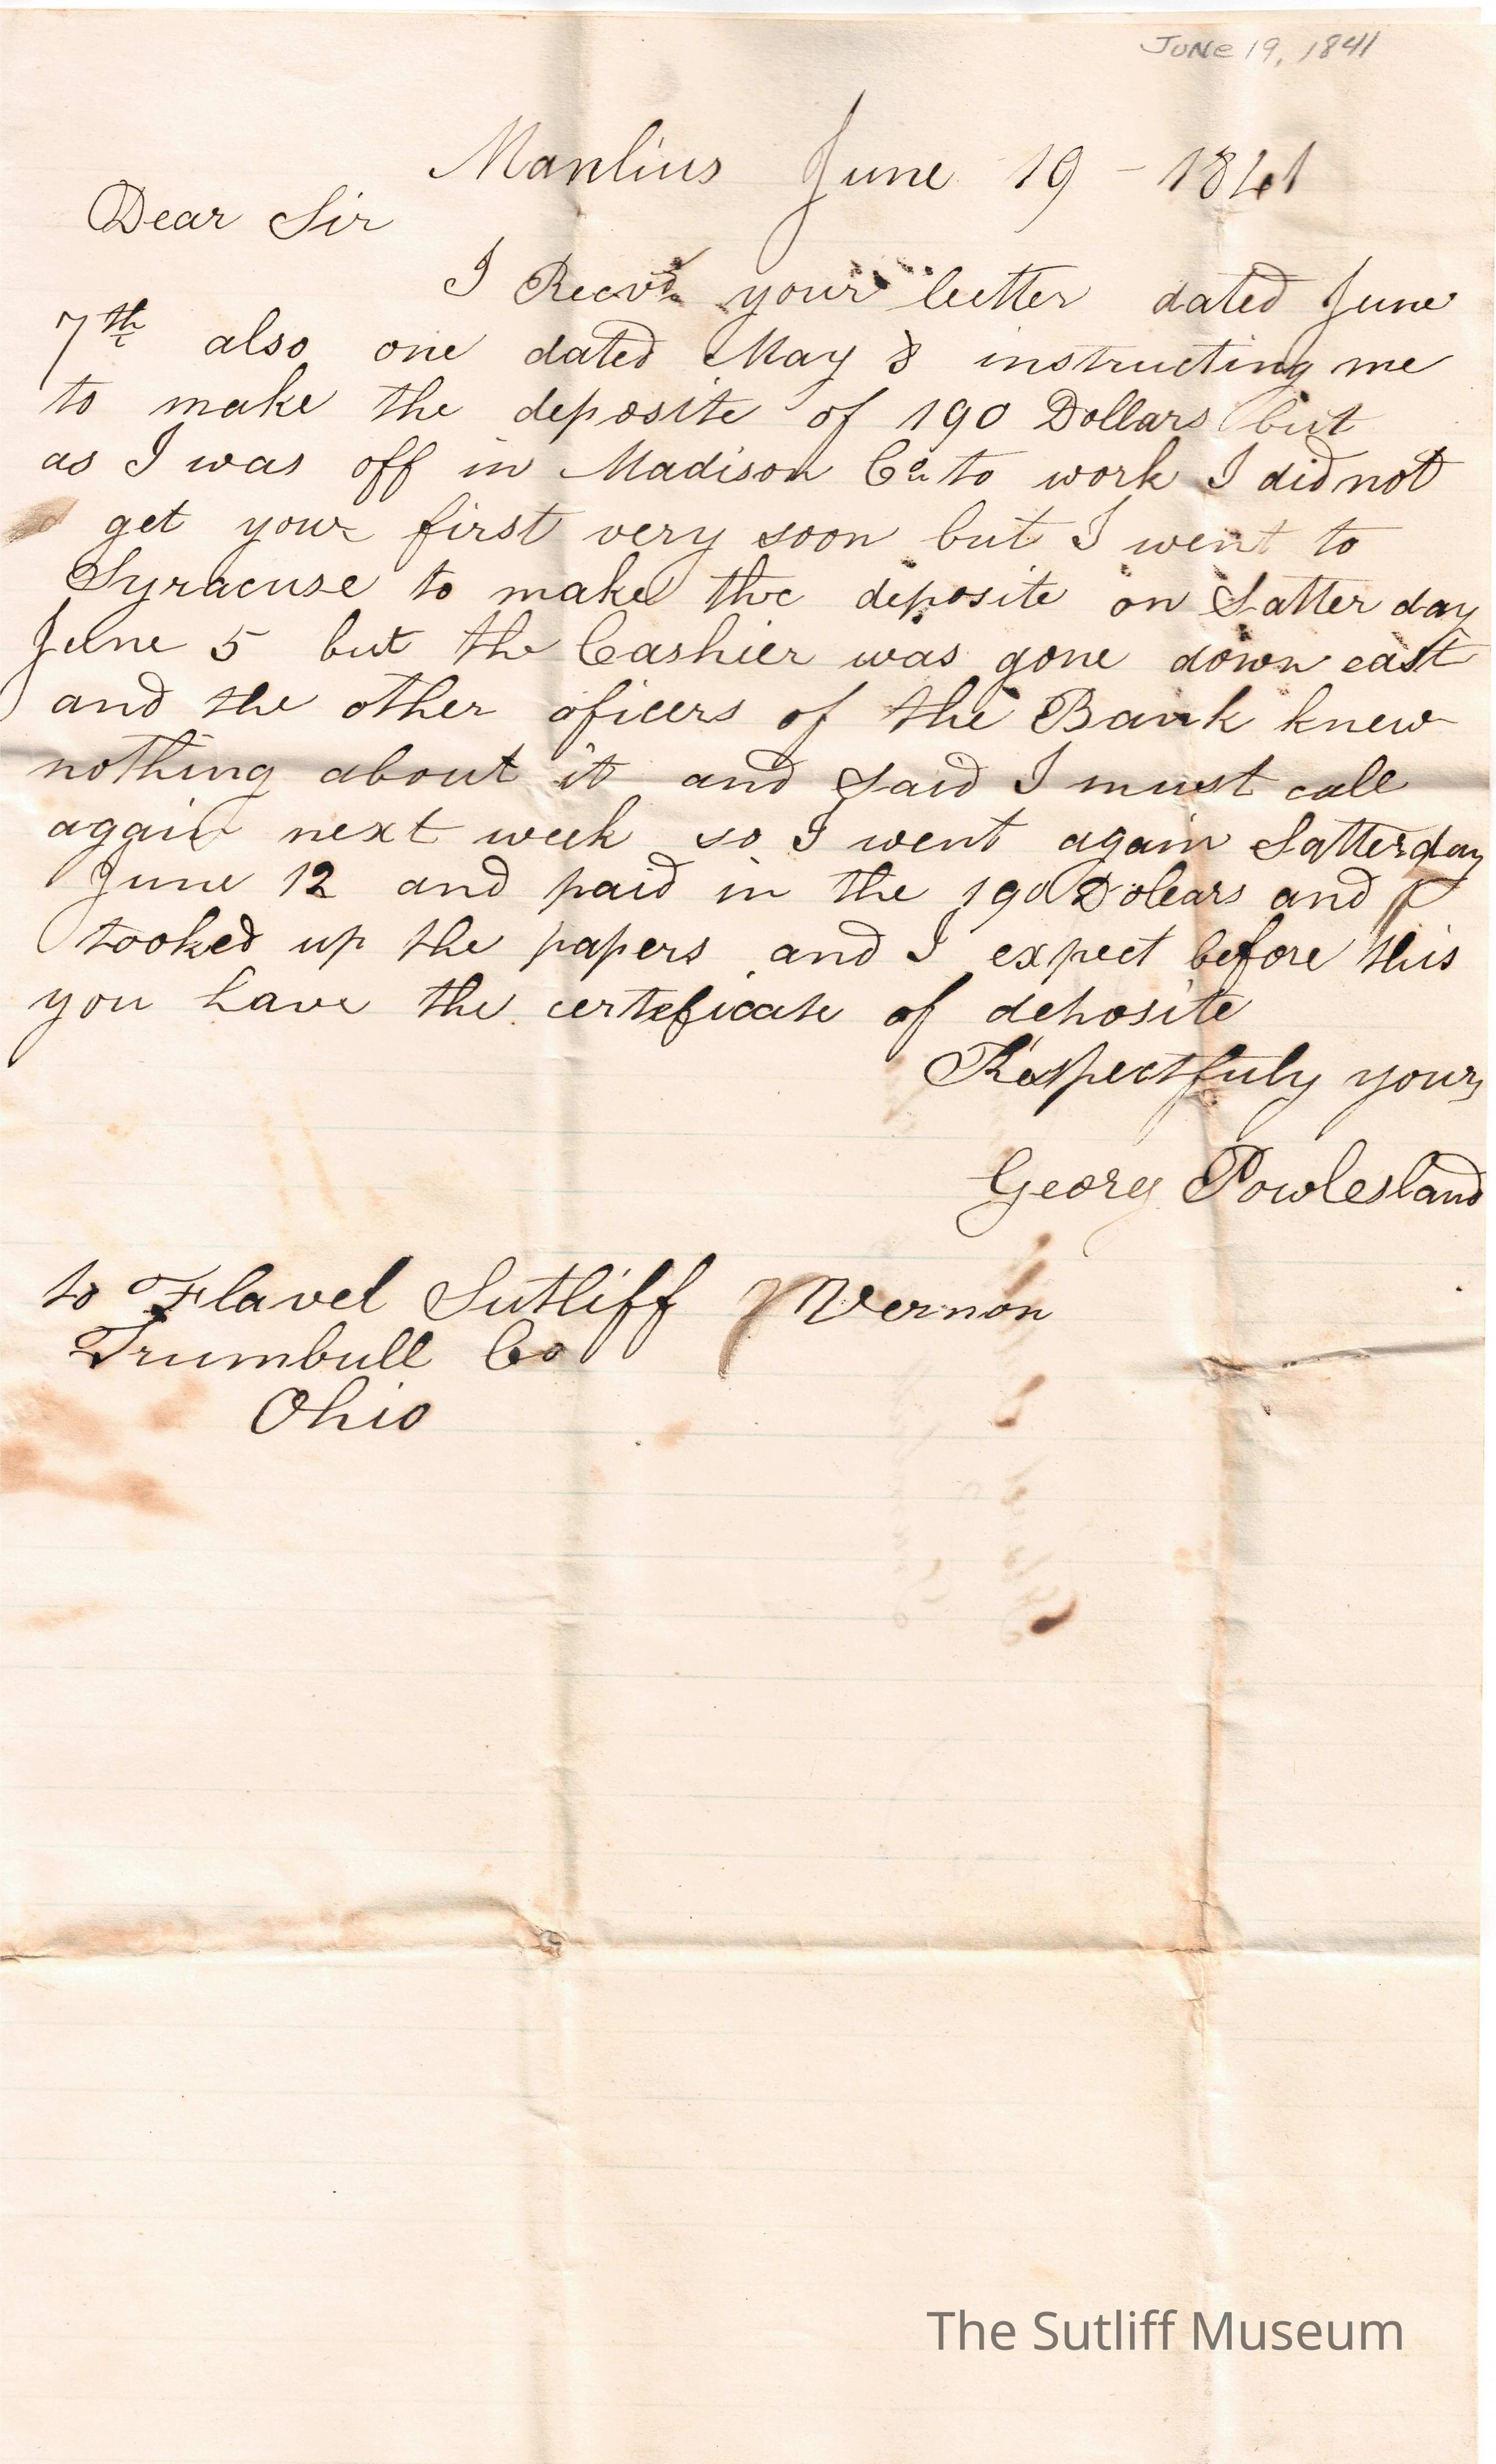 June 19, 1841
Manlius June 19 - 1841
Dear Sir
I Recvd your letter dated June
7th also one dated May 8 instructing me
to make the deposite of 190 Dollars but
as I was off in Madison Co to work I did not
get your first very soon but I went to
Syracuse to make the deposite on Satterday
June 5 but the Cashier was gone down east
and the other oficers of the Bank knew
nothing about it and said I must call
again next week so I went again Satterday
June 12 and paid in the 190 Dolears and I
tooked up the papers and I expect before this
you have the certeficate of deposite
Respectfuly yours
Georg Powlesland
to Flavel Sutliff Vernon
Trumbull Co
Ohio
The Sutliff Museum